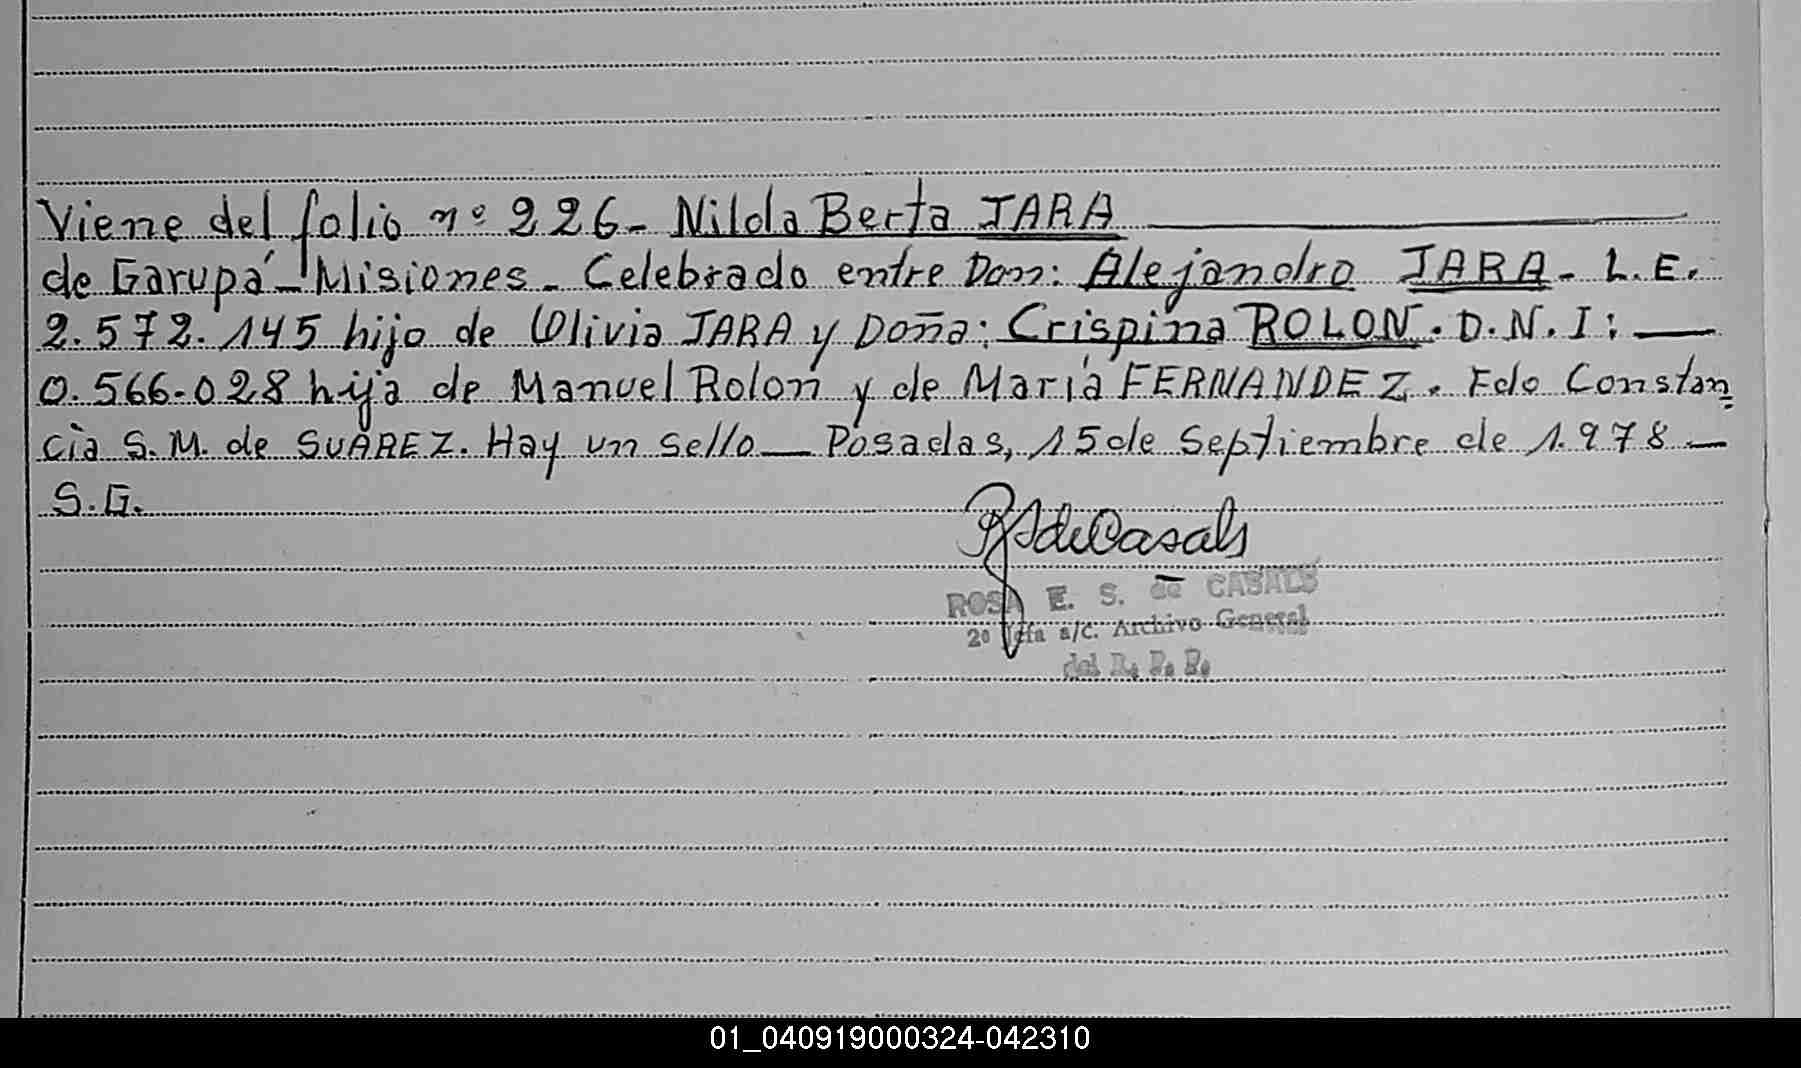 Viene del folio nº 226- Nilda Berta JARA
de Garupá - Misiones - Celebrado entre Don: Alejandro JARA - L.E.
2.572.145 hijo de Olivia JARA y Doña: Crispina ROLON. D.N.I: —
0.566.028 hija de Manuel Rolon y de María FERNANDEZ. Fdo Constan=
cia S.M. de SUAREZ. Hay un sello — Posadas, 15 de Septiembre de 1.978 —
S.G.
RSdeCasals
ROSA E. S. de CASALS
2º Jefa a/c. Archivo General
del R. P. P.
01_040919000324-042310